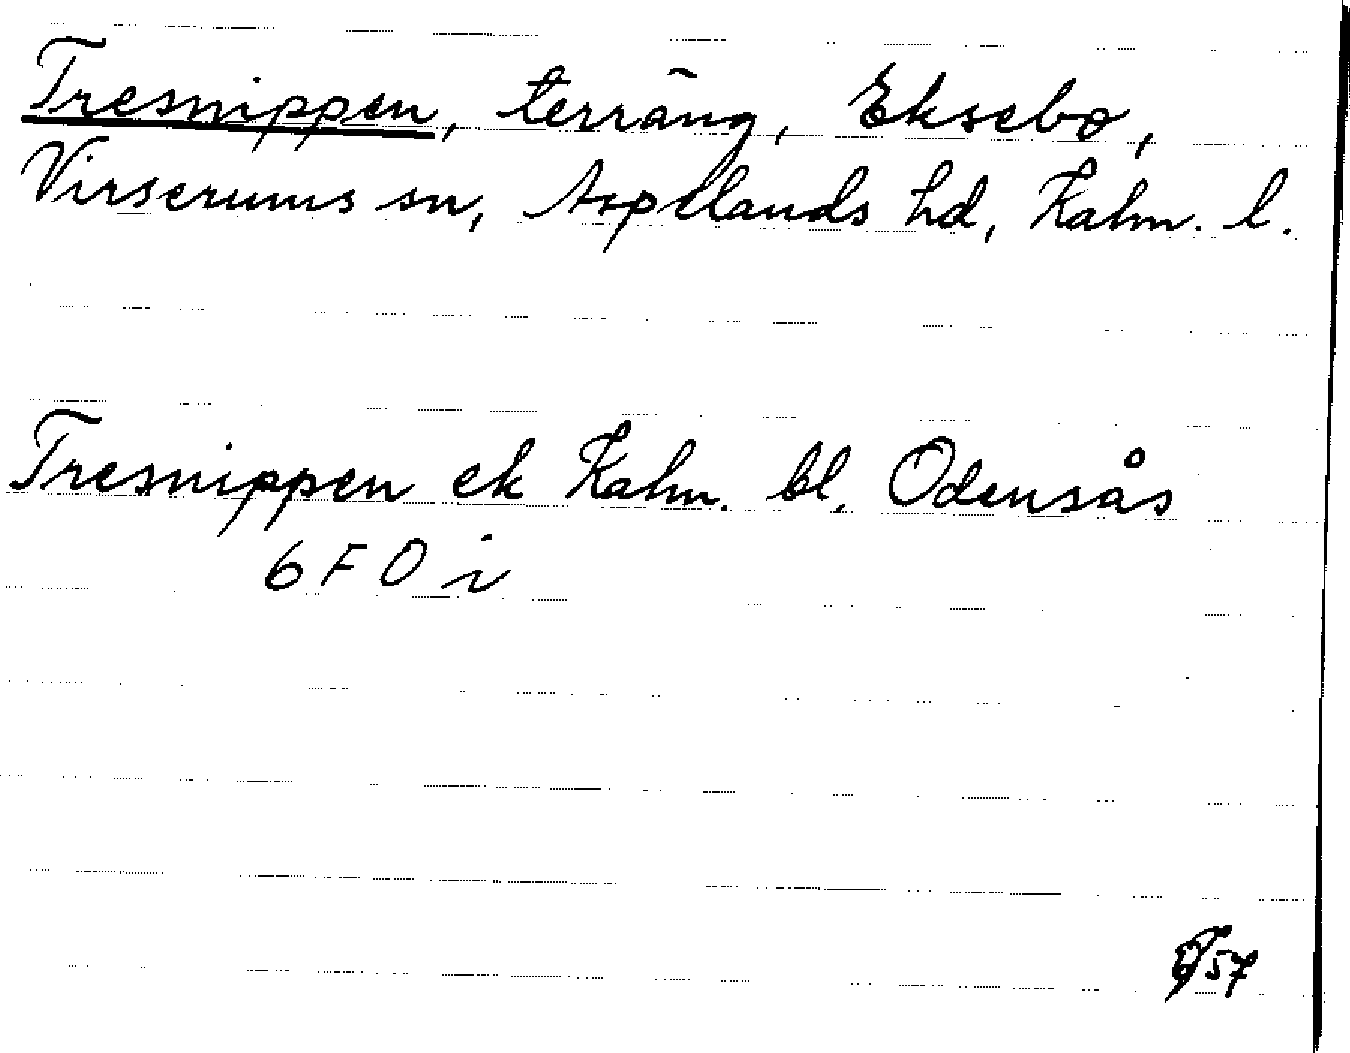 Tresnippen, terräng, Eksebo,
Virserums sn, Aspelands hd, Kalm. l.
Tresnippen ek Kalm. bl. Odensås
6 F 0 i
57